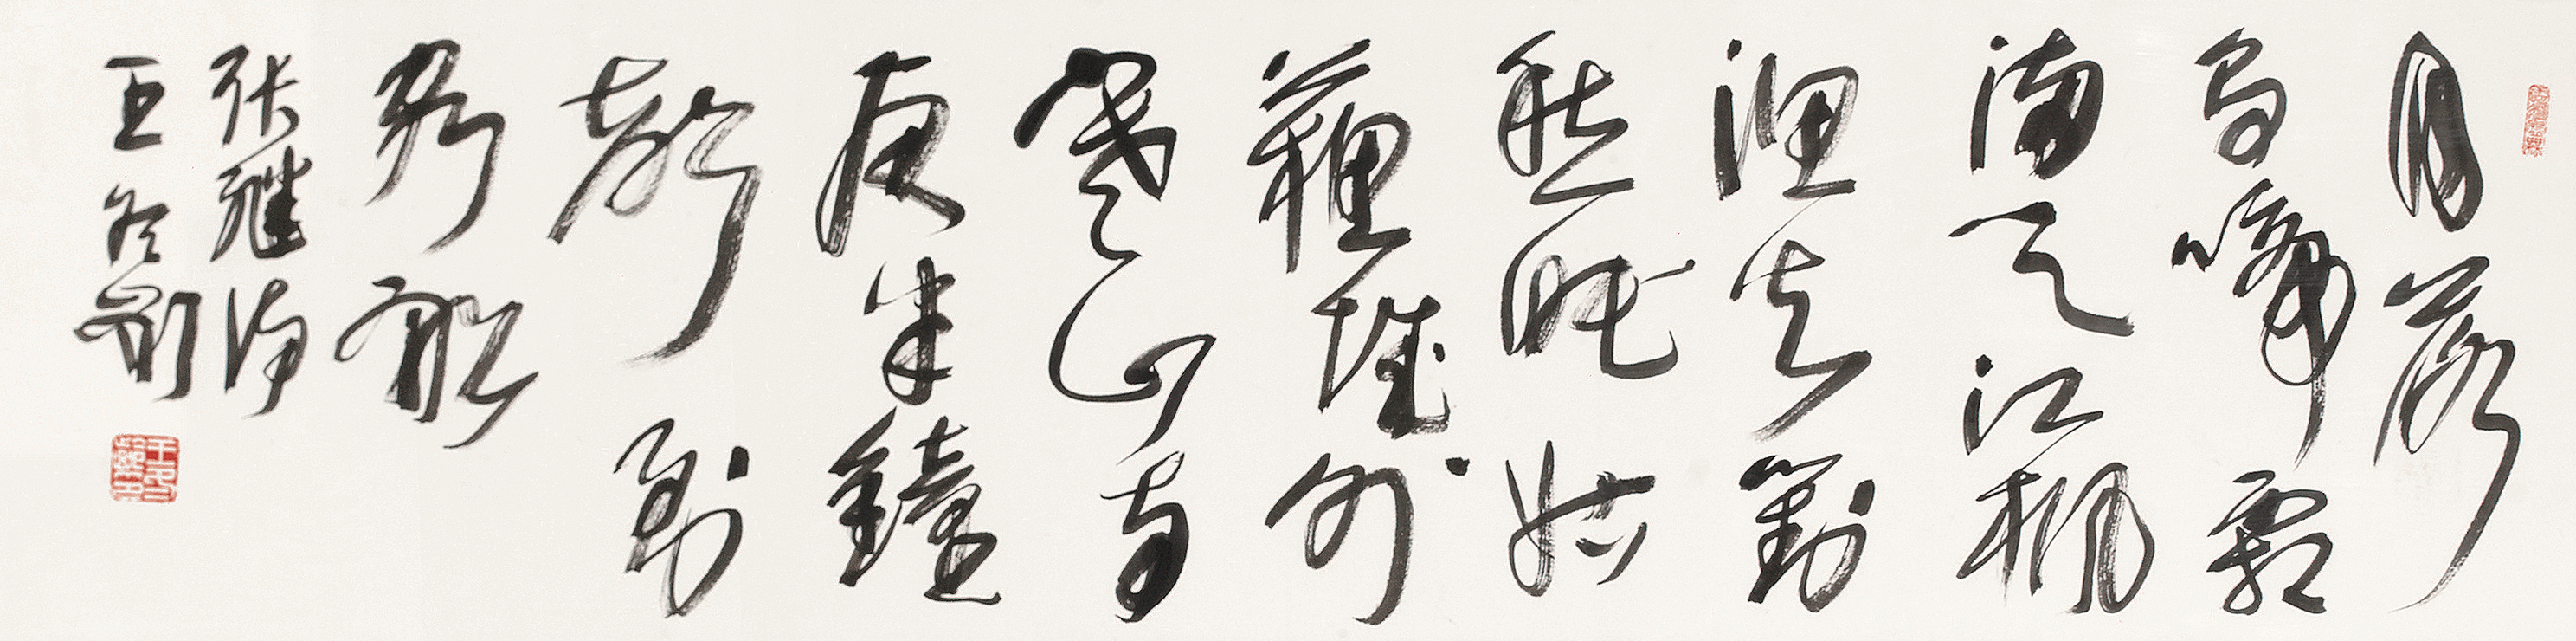 月落
烏啼霜
滿天江楓
漁火對
愁眠姑
蘓城外
寒山寺
夜半鐘
聲到
客船
张继诗
王冬齡